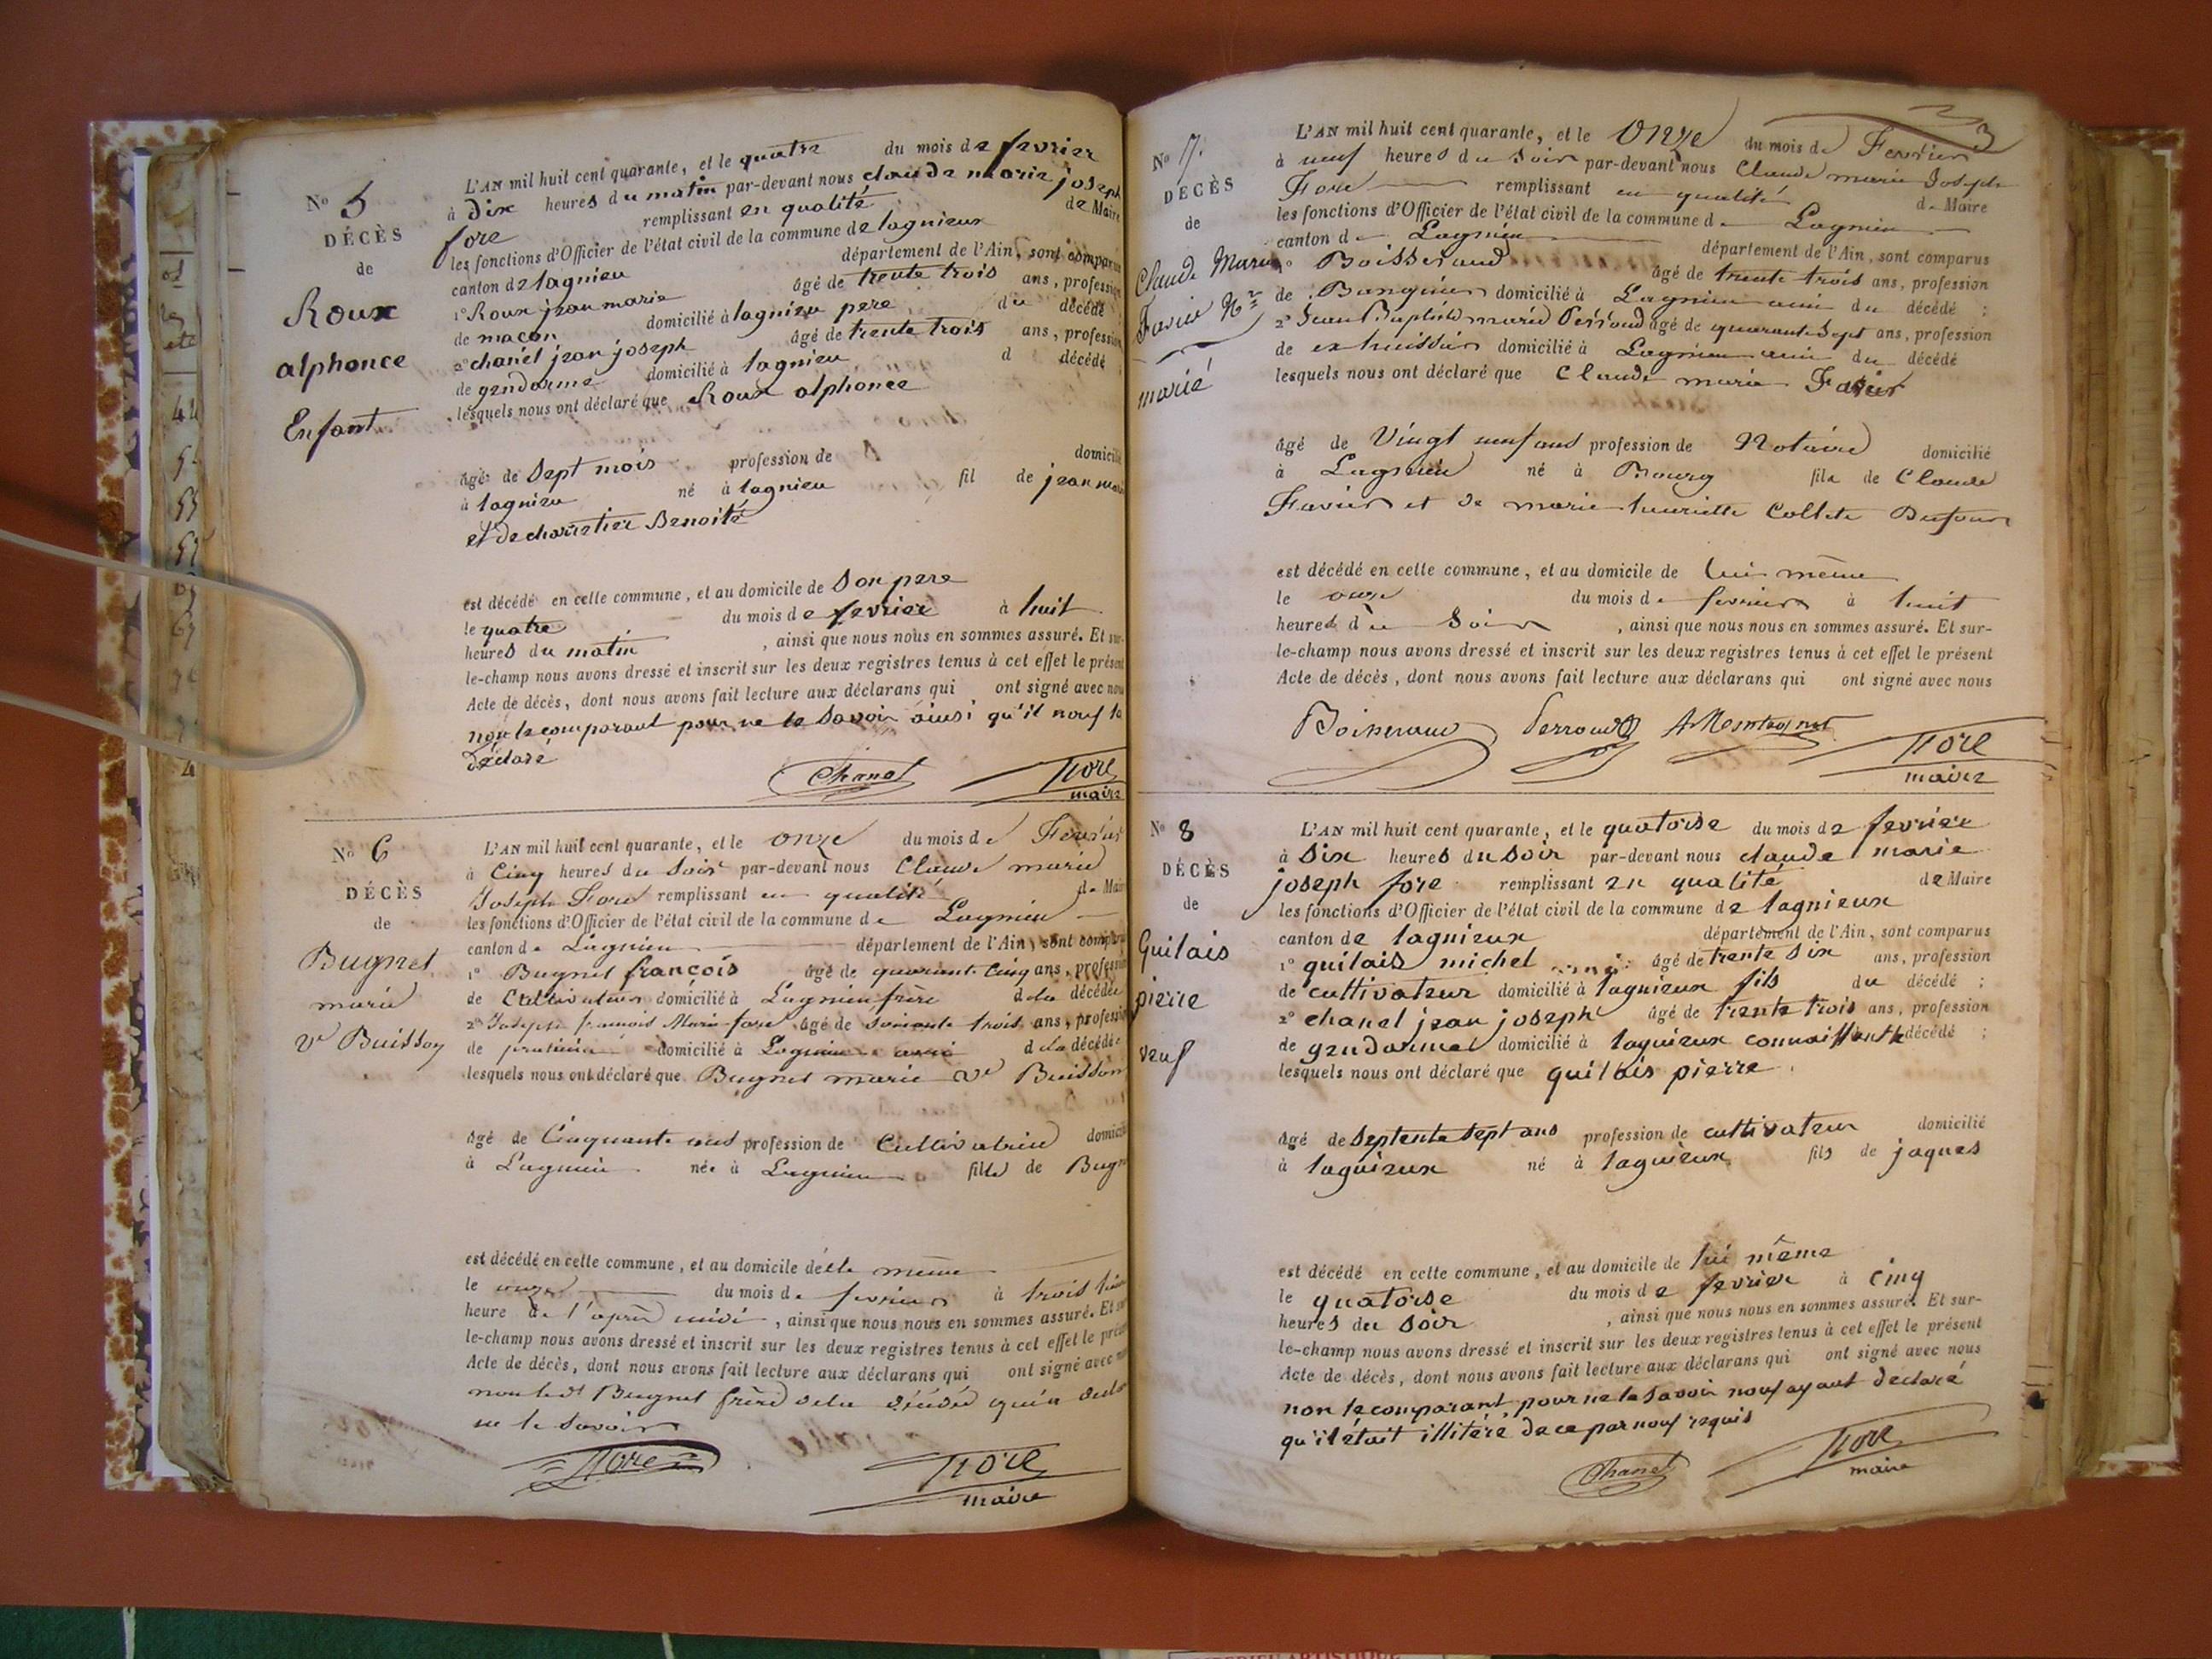 N° 5
DÉCÈS
de
Roux
alphonce
Enfant
L'AN mil huit cent quarante, et le quatre du mois de fevrier
à dix heures du matin par-devant nous claude marie joseph
fore remplissant en qualité de Maire
les fonctions d'Officier de l'état civil de la commune de lagnieux
canton de lagnieu département de l'Ain, sont comparus
1° Roux jean marie âgé de trente trois ans, profession
de macon domicilié à lagnieu pere du décédé
2° chanel jean joseph âgé de trente trois ans, profession
de gendarme domicilié à lagnieu d décédé
lesquels nous ont déclaré que Roux alphonce
âgé de sept mois profession de domicilié
à lagnieu né à lagnieu fil de jean marie
et de charretier Benoite
est décédé en cette commune, et au domicile de son pere
le quatre du mois de fevrier à huit
heures du matin, ainsi que nous nous en sommes assuré. Et sur-
le-champ nous avons dressé et inscrit sur les deux registres tenus à cet effet le présent
Acte de décès, dont nous avons fait lecture aux déclarans qui ont signé avec nous
non le comparant pour ne le savoir ainsi qu'il nous la
déclaré
Chanel Fore
maire
N° 6
DÉCÈS
de
Bugnet
marie
Ve Buisson
L'AN mil huit cent quarante, et le onze du mois de Fevrier
à Cinq heures du Soir par-devant nous Claude marie
Joseph Fore remplissant en qualité de Maire
les fonctions d'Officier de l'état civil de la commune de Lagnieu
canton de Lagnieu département de l'Ain, sont comparus
1° Bugnet françois âgé de quarante Cinq ans, profession
de Cultivateur domicilié à Lagnieu frère de la décédée
2° Joseph francois Marie fore âgé de soixante trois ans, profession
de praticien domicilié à Lagnieu ami de la décédée
lesquels nous ont déclaré que Bugnet marie Ve Buisson
âgé de Cinquante ans profession de Cultivatrice domicilié
à Lagnieu née à Lagnieu fille de Bugn
est décédé en cette commune, et au domicile d'elle même
le onze du mois de fevrier à trois
heure de l'après midi, ainsi que nous nous en sommes assuré. Et sur
le-champ nous avons dressé et inscrit sur les deux registres tenus à cet effet le présent
Acte de décès, dont nous avons fait lecture aux déclarans qui ont signé avec nous
non led Bugnet frère de la décédée qui a
ne le savoir
Fore Fore
maire
3
N° 7.
DÉCÈS
de
Claude Marie
Favier Nre
marié
L'AN mil huit cent quarante, et le Onze du mois de Fevrier
à neuf heures du Soir par-devant nous Claude marie Joseph
Fore remplissant en qualité de Maire
les fonctions d'Officier de l'état civil de la commune de Lagnieu
canton de Lagnieu département de l'Ain, sont comparus
1° Boisseraud âgé de trente trois ans, profession
de Banquier domicilié à Lagnieu ami du décédé ;
2° Jean Baptiste marie Perroud âgé de quarante Sept ans, profession
de ex huissier domicilié à Lagnieu ami du décédé
lesquels nous ont déclaré que Claude marie Favier
âgé de Vingt neuf ans profession de Notaire domicilié
à Lagnieu né à Bourg fils de Claude
Favier et de marie henriette Collete Dufour
est décédé en cette commune, et au domicile de lui même
le onze du mois de fevrier à huit
heures du Soir, ainsi que nous nous en sommes assuré. Et sur-
le-champ nous avons dressé et inscrit sur les deux registres tenus à cet effet le présent
Acte de décès, dont nous avons fait lecture aux déclarans qui ont signé avec nous
Boisseraud Perroud Fore
maire
N° 8
DÉCÈS
de
Guilais
pierre
veuf
L'AN mil huit cent quarante, et le quatorse du mois de fevrier
à six heures du soir par-devant nous claude marie
joseph fore remplissant en qualité de Maire
les fonctions d'Officier de l'état civil de la commune de lagnieux
canton de lagnieux département de l'Ain, sont comparus
1° guilais michel âgé de trente six ans, profession
de cultivateur domicilié à lagnieux fils du décédé ;
2° chanel jean joseph âgé de trente trois ans, profession
de gendarme domicilié à lagnieux connaissant le décédé ;
lesquels nous ont déclaré que guilais pierre
âgé de septente sept ans profession de cultivateur domicilié
à lagnieux né à lagnieux fils de jaques
est décédé en cette commune, et au domicile de lui même
le quatorse du mois de fevrier à cinq
heures du soir, ainsi que nous nous en sommes assuré. Et sur-
le-champ nous avons dressé et inscrit sur les deux registres tenus à cet effet le présent
Acte de décès, dont nous avons fait lecture aux déclarans qui ont signé avec nous
non le comparant pour ne le savoir nous ayant declaré
qu'il était illitéré de ce par nous requis
Chanel Fore
maire